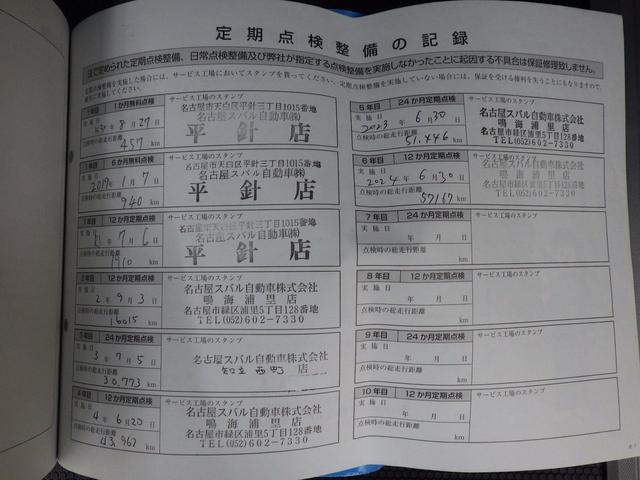 定期点検整備の記録
法で定められた定期点検整備、日常点検整備及び弊社が指定する点検整備を実施しなかったことに起因する不具合は保証修理致しません。
定期点検整備を実施した場合には、サービス工場においてスタンプを貰ってください。定期点検整備を実施していない場合には、保証を受ける権利を失うことにもなりますので、
実施してください。
1か月無料点検
サービス工場のスタンプ
実施日
8月27日
点検時の総走行距離
457 km
名古屋市天白区平針三丁目1015番地
名古屋スバル自動車㈱
平針店
6か月無料点検
サービス工場のスタンプ
実施日
2019年1月7日
点検時の総走行距離
940 km
名古屋市天白区平針三丁目1015番地
名古屋スバル自動車㈱
平針店
1年目 12か月定期点検
サービス工場のスタンプ
実施日
7月6日
点検時の総走行距離
km
名古屋市天白区平針三丁目1015番地
名古屋スバル自動車㈱
平針店
2年目 12か月定期点検
サービス工場のスタンプ
実施日
2年9月3日
点検時の総走行距離
16015 km
名古屋スバル自動車株式会社
鳴海浦里店
名古屋市緑区浦里5丁目128番地
TEL(052)602-7330
3年目 24か月定期点検
サービス工場のスタンプ
実施日
3年7月5日
点検時の総走行距離
30,773 km
名古屋スバル自動車株式会社
知立西町店
4年目 12か月定期点検
サービス工場のスタンプ
実施日
4年6月20日
点検時の総走行距離
43,962 km
名古屋スバル自動車株式会社
鳴海浦里店
名古屋市緑区浦里5丁目128番地
TEL(052)602-7330
5年目 24か月定期点検
サービス工場のスタンプ
実施日
2023年6月30日
点検時の総走行距離
51,446 km
名古屋スバル自動車株式会社
鳴海浦里店
名古屋市緑区浦里5丁目128番地
TEL(052)602-7330
6年目 12か月定期点検
サービス工場のスタンプ
実施日
2024年6月30日
点検時の総走行距離
57167 km
名古屋スバル自動車株式会社
鳴海浦里店
名古屋市緑区浦里5丁目128番地
TEL(052)602-7330
7年目 24か月定期点検
サービス工場のスタンプ
実施日
年月日
点検時の総走行距離
km
8年目 12か月定期点検
サービス工場のスタンプ
実施日
年月日
点検時の総走行距離
km
9年目 24か月定期点検
サービス工場のスタンプ
実施日
年月日
点検時の総走行距離
km
10年目 12か月定期点検
サービス工場のスタンプ
実施日
年月日
点検時の総走行距離
km